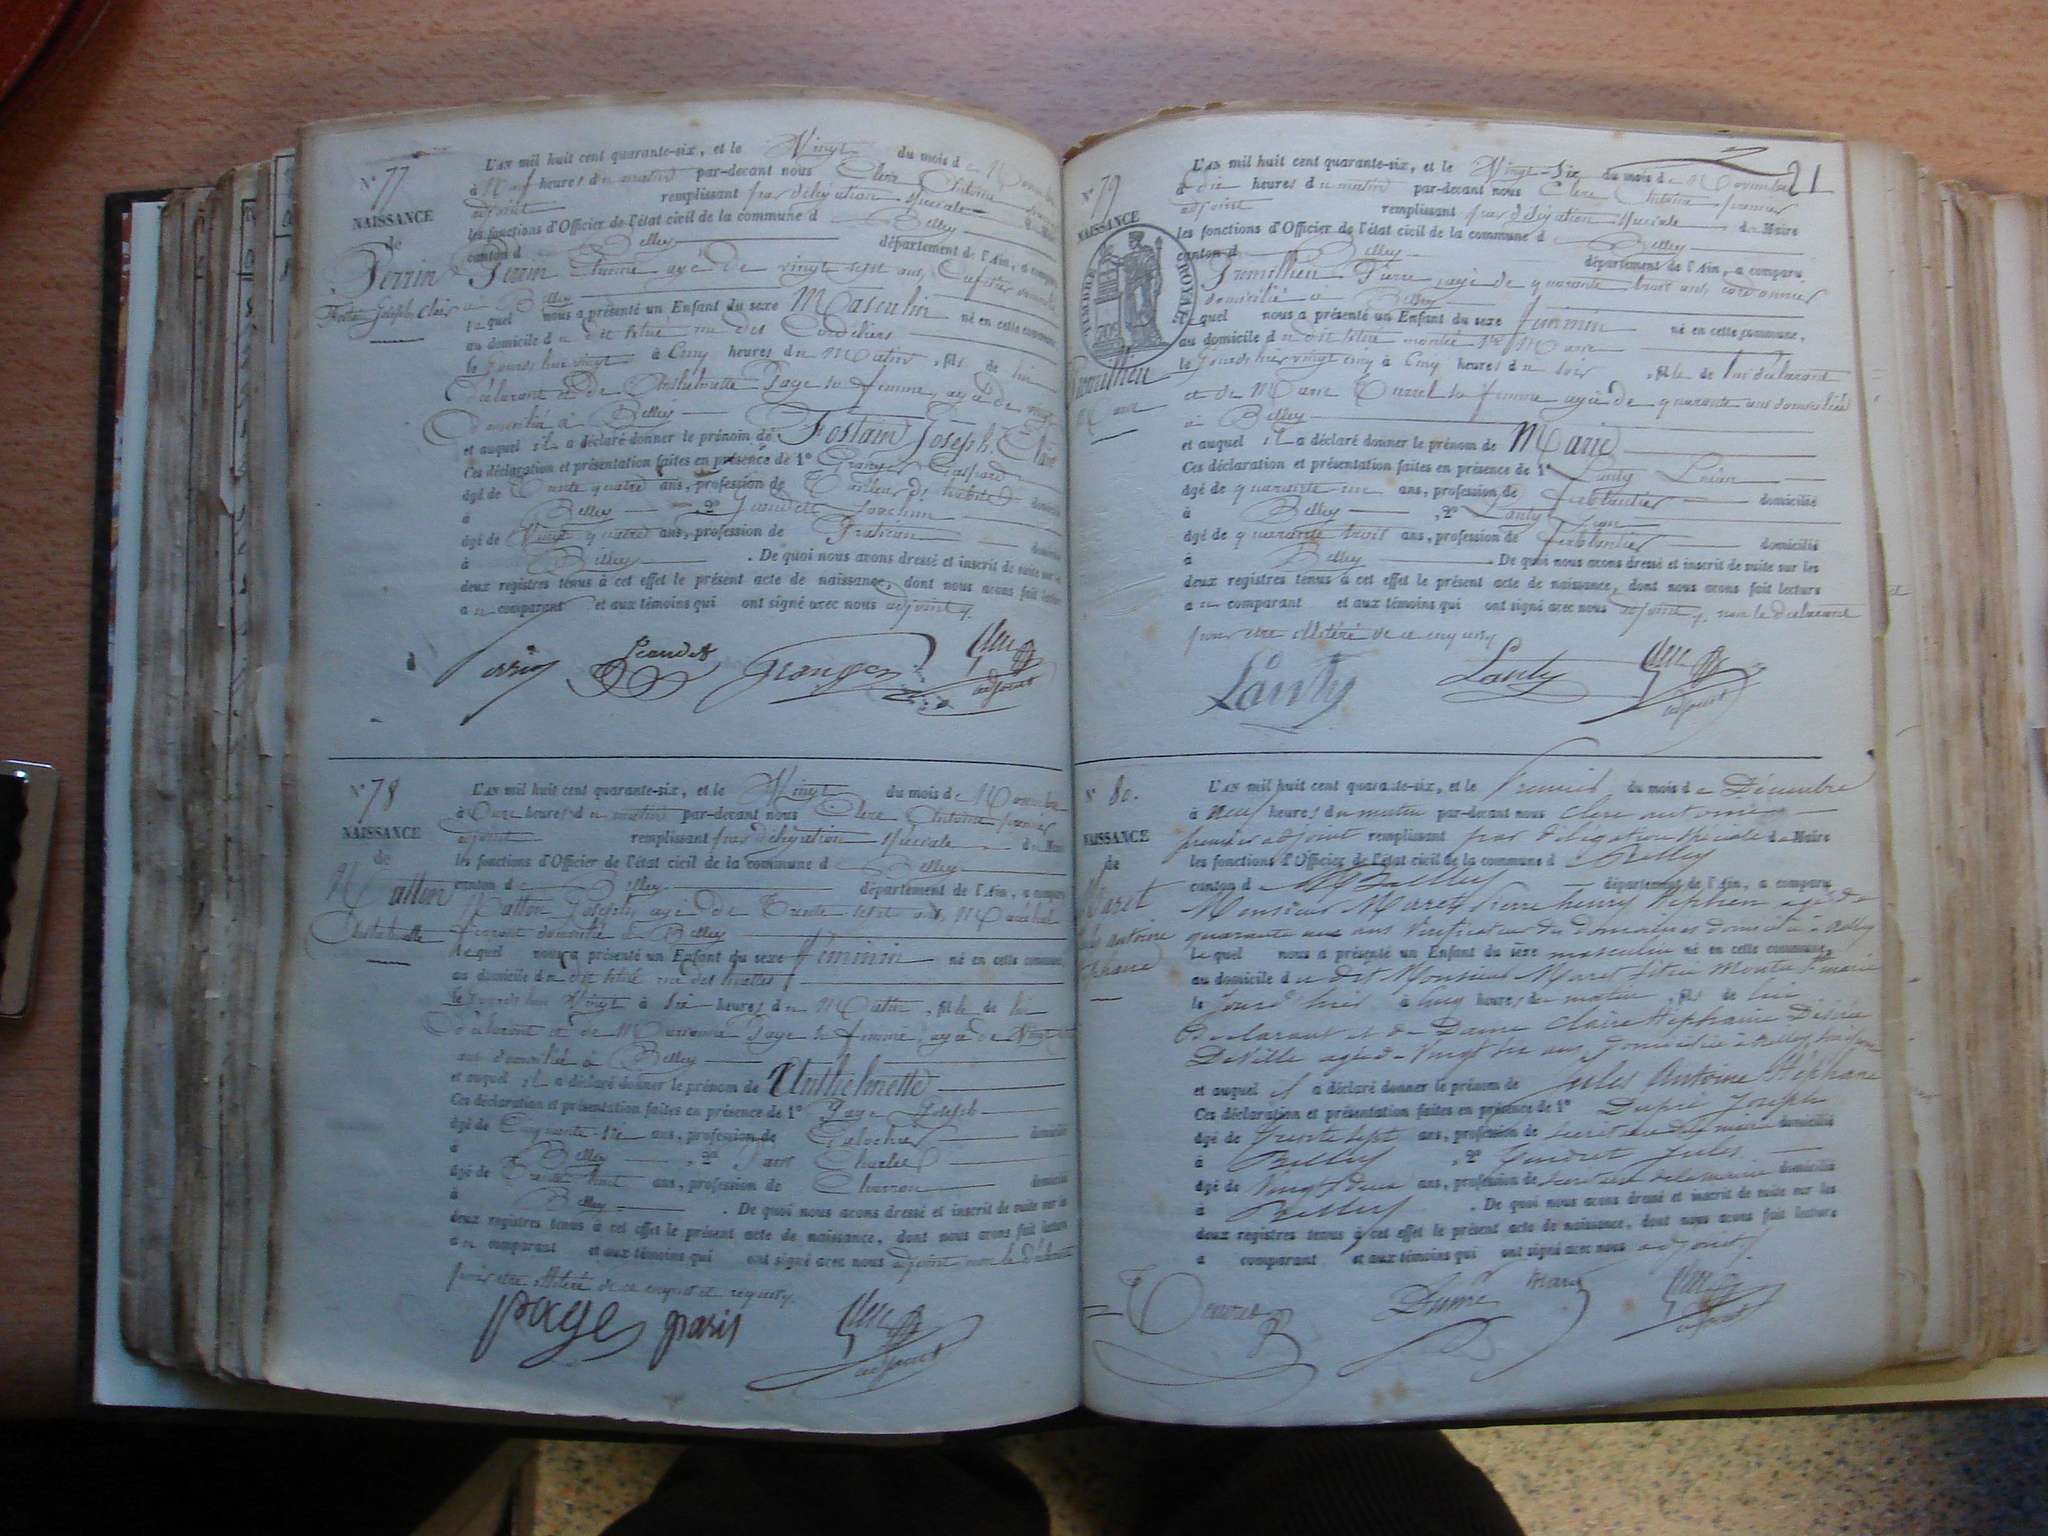 N° 77
NAISSANCE
de
Perrin
Joseph, Clair
L'AN mil huit cent quarante-six, et le Vingt du mois de
à Neuf heures du matin par-devant nous Clerc Antoine
adjoint remplissant par délégation spéciale
les fonctions d'Officier de l'état civil de la commune d Belley
canton d Belley département de l'Ain, a comparu
Perrin Etienne agé de vingt sept ans,
à Belley
lequel nous a présenté un Enfant du sexe Masculin né en cette commune
au domicile du dit rue des Cordeliers
le jourd'hui vingt à Cinq heures du Matin, fils de lui
déclarant et de Anthelmette Page sa femme, agé de
domicilié à Belley
et auquel il a déclaré donner le prénom de Joseph, Clair
Ces déclaration et présentation faites en présence de 1° Granger Gaspard
âgé de Trente quatre ans, profession de Tailleur d'habits domicilié
à Belley, 2° Joachim
âgé de Vingt quatre ans, profession de Praticien domicilié
à Belley. De quoi nous avons dressé et inscrit de suite sur les
deux registres tenus à cet effet le présent acte de naissance, dont nous avons fait lecture
au comparant et aux témoins qui ont signé avec nous adjoint
Perrin Granger Clerc
adjoint
N° 78
NAISSANCE
de
Matton
Anthelmette
L'AN mil huit cent quarante-six, et le Vingt du mois de Novembre
à Onze heures du matin par-devant nous Clerc Antoine premier
adjoint remplissant par délégation spéciale du Maire
les fonctions d'Officier de l'état civil de la commune d Belley
canton de Belley département de l'Ain, a comparu
Matton Joseph, agé de Trente sept ans, Maréchal
ferrant domicilié à Belley
lequel nous a présenté un Enfant du sexe féminin né en cette commune
au domicile du dit rue des
le jourd'hui Vingt à Six heures du Matin, fille de lui
déclarant et de Page sa femme, agée de Vingt
ans domicilié à Belley
et auquel il a déclaré donner le prénom de Anthelmette
Ces déclaration et présentation faites en présence de 1° Page Joseph
âgé de Cinquante Six ans, profession de Galochier domicilié
à Belley, 2° Paris Charles
âgé de Trente ans, profession de Charron domicilié
à Belley. De quoi nous avons dressé et inscrit de suite sur les
deux registres tenus à cet effet le présent acte de naissance, dont nous avons fait lecture
au comparant et aux témoins qui ont signé avec nous adjoint non le déclarant
pour être illitéré de ce enquis et requis
page paris Clerc
adjoint
21
N° 79
NAISSANCE
de
TIMBRE ROYAL
Marie
L'AN mil huit cent quarante-six, et le Vingt-Six du mois de Novembre
à dix heures du matin par-devant nous Clerc Antoine premier
adjoint remplissant par délégation spéciale du Maire
les fonctions d'Officier de l'état civil de la commune de Belley
canton d Belley département de l'Ain, a comparu
Pierre, agé de quarante trois ans, cordonnier
domicilié à Belley
lequel nous a présenté un Enfant du sexe féminin né en cette commune,
au domicile du dit montée Ste Marie
le jourd'hier vingt cinq à Cinq heures du soir, fille de lui déclarant
et de Marie sa femme agée de quarante ans domiciliée
à Belley
et auquel il a déclaré donner le prénom de Marie
Ces déclaration et présentation faites en présence de 1° Lanty
âgé de quarante un ans, profession de ferblantier domicilié
à Belley, 2° Lanty Jean
âgé de quarante trois ans, profession de ferblantier domicilié
à Belley. De quoi nous avons dressé et inscrit de suite sur les
deux registres tenus à cet effet le présent acte de naissance, dont nous avons fait lecture
au comparant et aux témoins qui ont signé avec nous adjoint, non le déclarant
pour être illitéré de ce enquis
Lanty Lanty Clerc
adjoint
N° 80.
NAISSANCE
de
Maret
Jules antoine
Stéphane
L'AN mil huit cent quarante-six, et le Premier du mois de Décembre
à Neuf heures du matin par-devant nous Clerc antoine
premier adjoint remplissant par délégation spéciale du Maire
les fonctions d'Officier de l'état civil de la commune d Belley
canton d Belley département de l'Ain, a comparu
Monsieur Maret Pierre henry Stephen agé de
quarante ans Vérificateur des domaines domicilié à Belley
lequel nous a présenté un Enfant du sexe masculin né en cette commune,
au domicile du dit Monsieur Maret Montée Ste marie
le jourd'hui à Cinq heures du matin, fils de lui
Déclarant et de Dame Claire Stéphanie Désirée
Deville agée de Vingt six ans, domiciliée à Belley
et auquel il a déclaré donner le prénom de Jules Antoine Stéphane
Ces déclaration et présentation faites en présence de 1° Dupré Joseph
âgé de Trente sept ans, profession de secrétaire de la mairie domicilié
à Belley, 2° Jules
âgé de Vingt deux ans, profession de secrétaire de la mairie domicilié
à Belley. De quoi nous avons dressé et inscrit de suite sur les
deux registres tenus à cet effet le présent acte de naissance, dont nous avons fait lecture
a comparant et aux témoins qui ont signé avec nous adjoint
Dupré Maret Clerc
adjoint